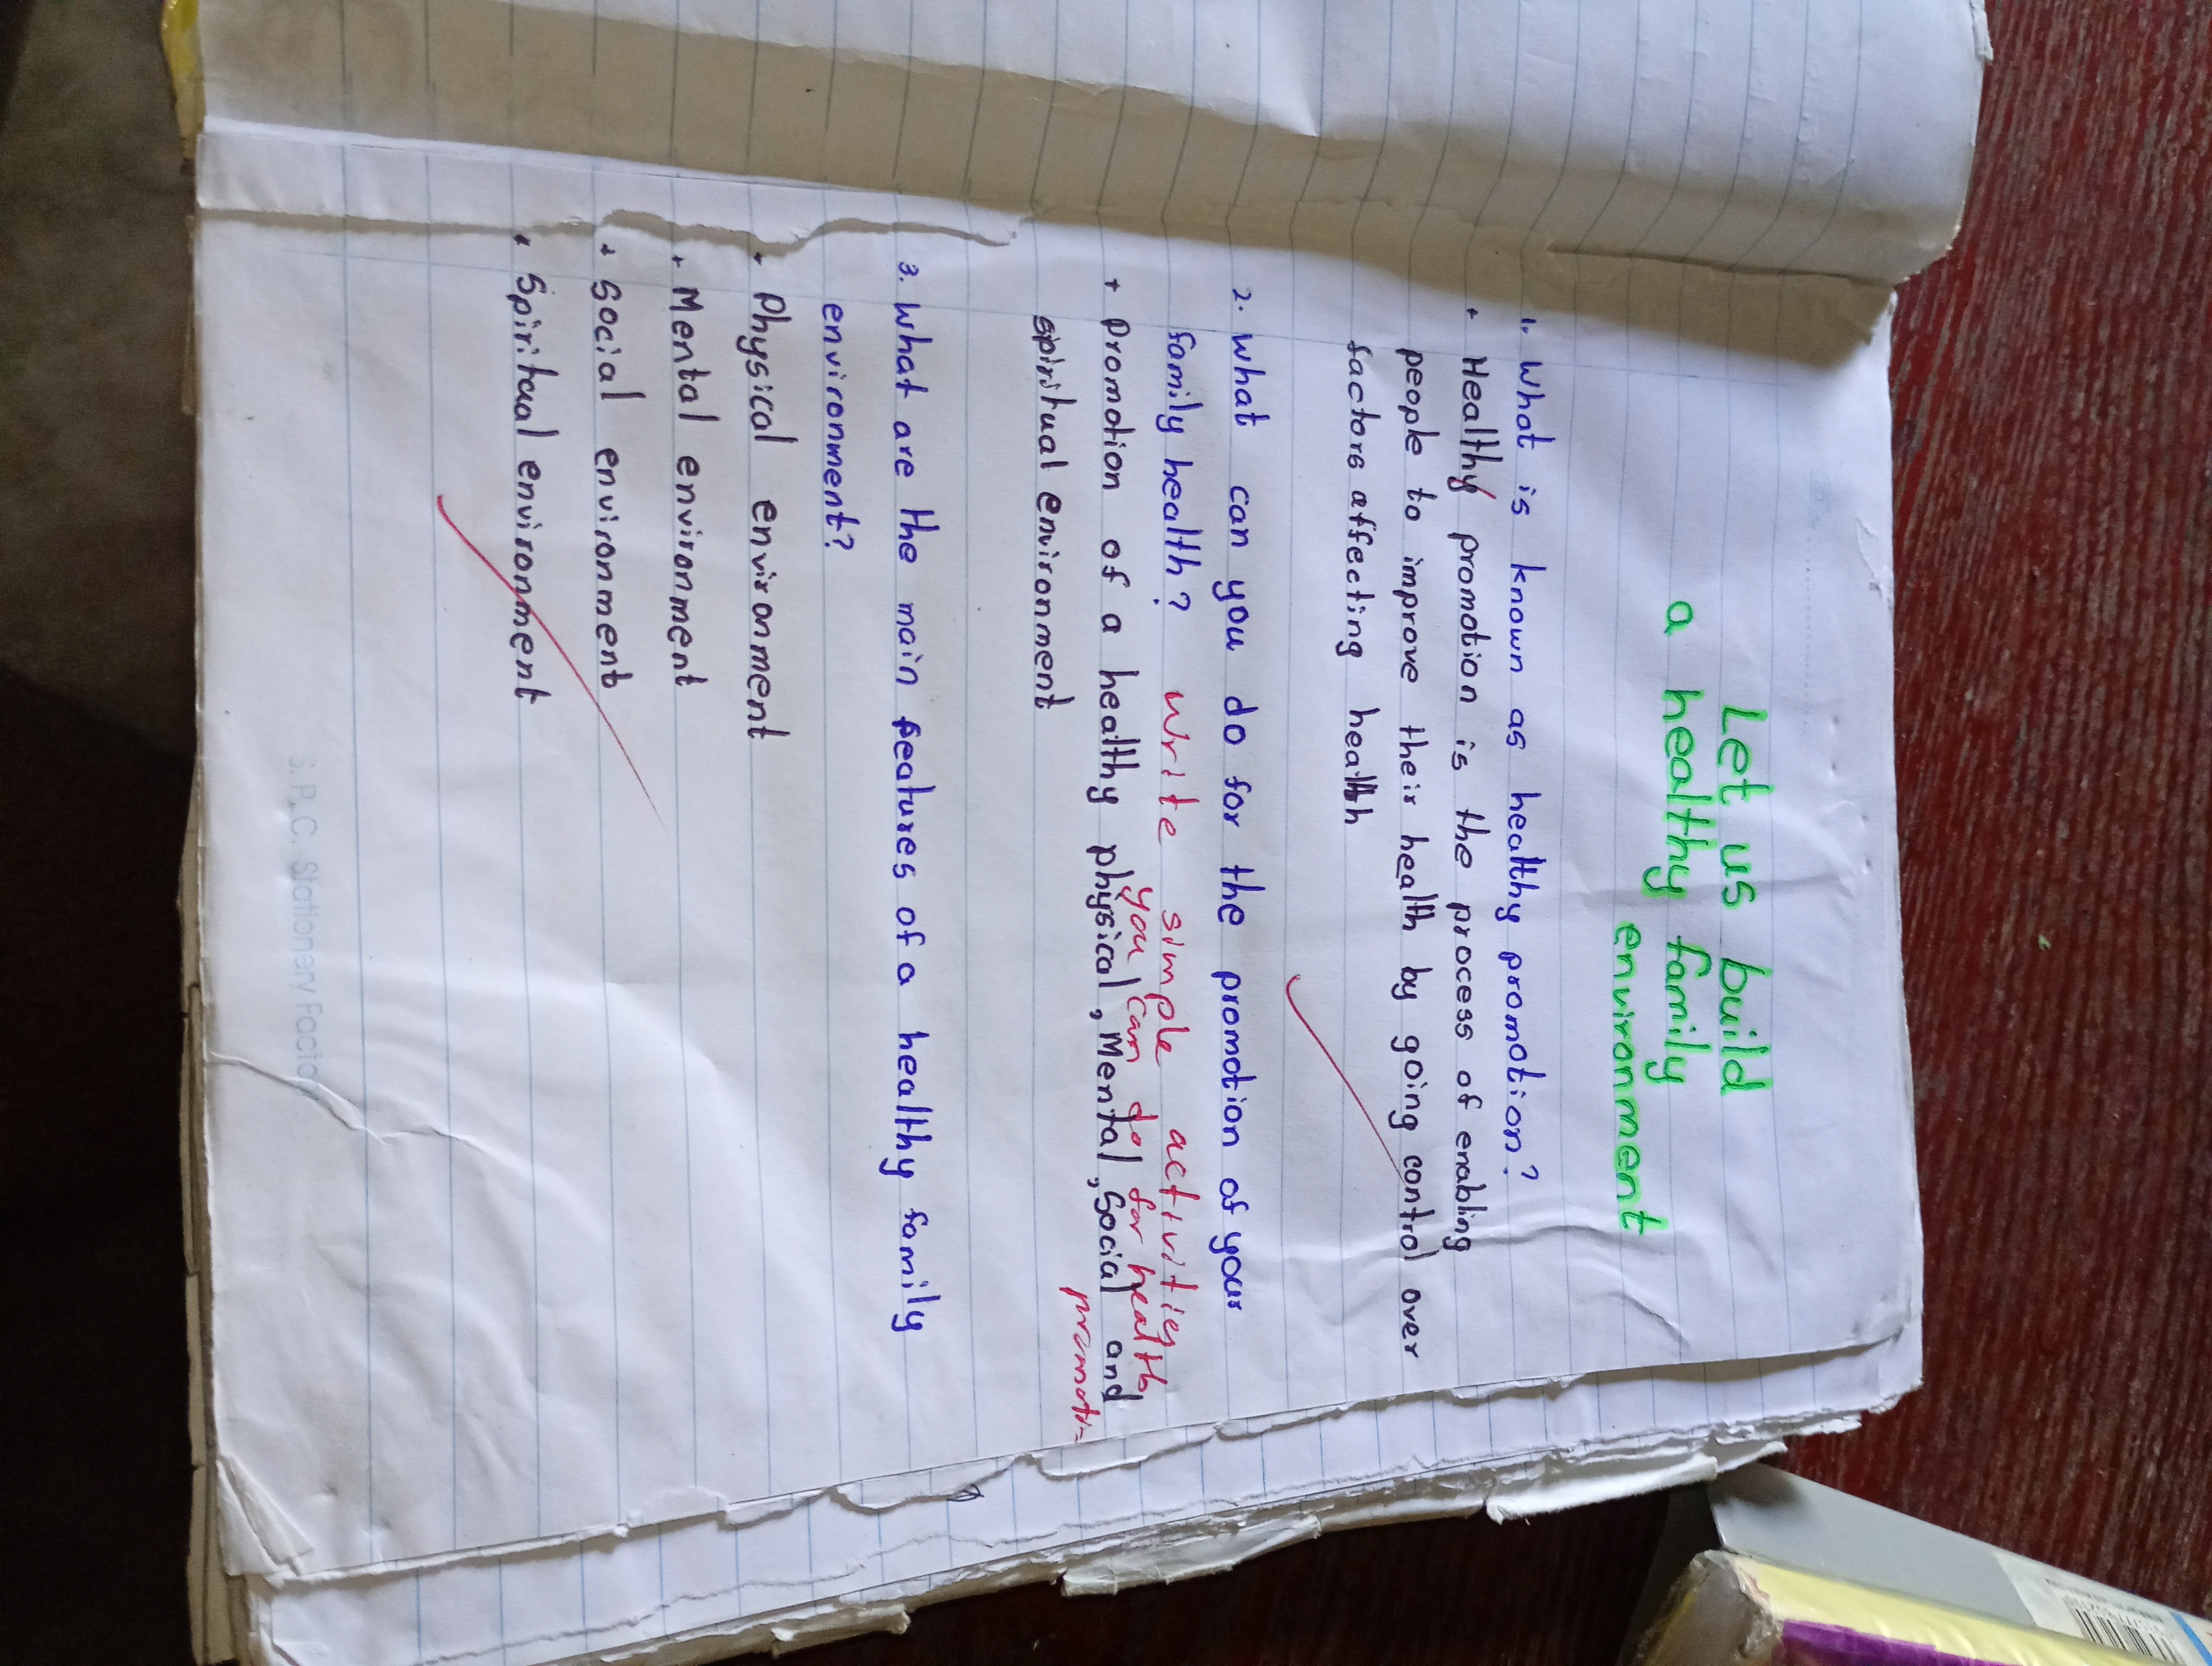 Let us build
a healthy family
environment
1. What is known as healthy promotion?
+ Healthy promotion is the process of enabling
people to improve their health by going control over
factors affecting health
2. What can you do for the promotion of your
family health? write simple activities
you can do for health
+ promotion of a healthy physical, Mental, Social and
spiritual environment
3. What are the main features of a healthy family
environment?
+ Physical environment
+ Mental environment
+ Social environment
+ Spiritual environment
S.P.C. Stationery Factor